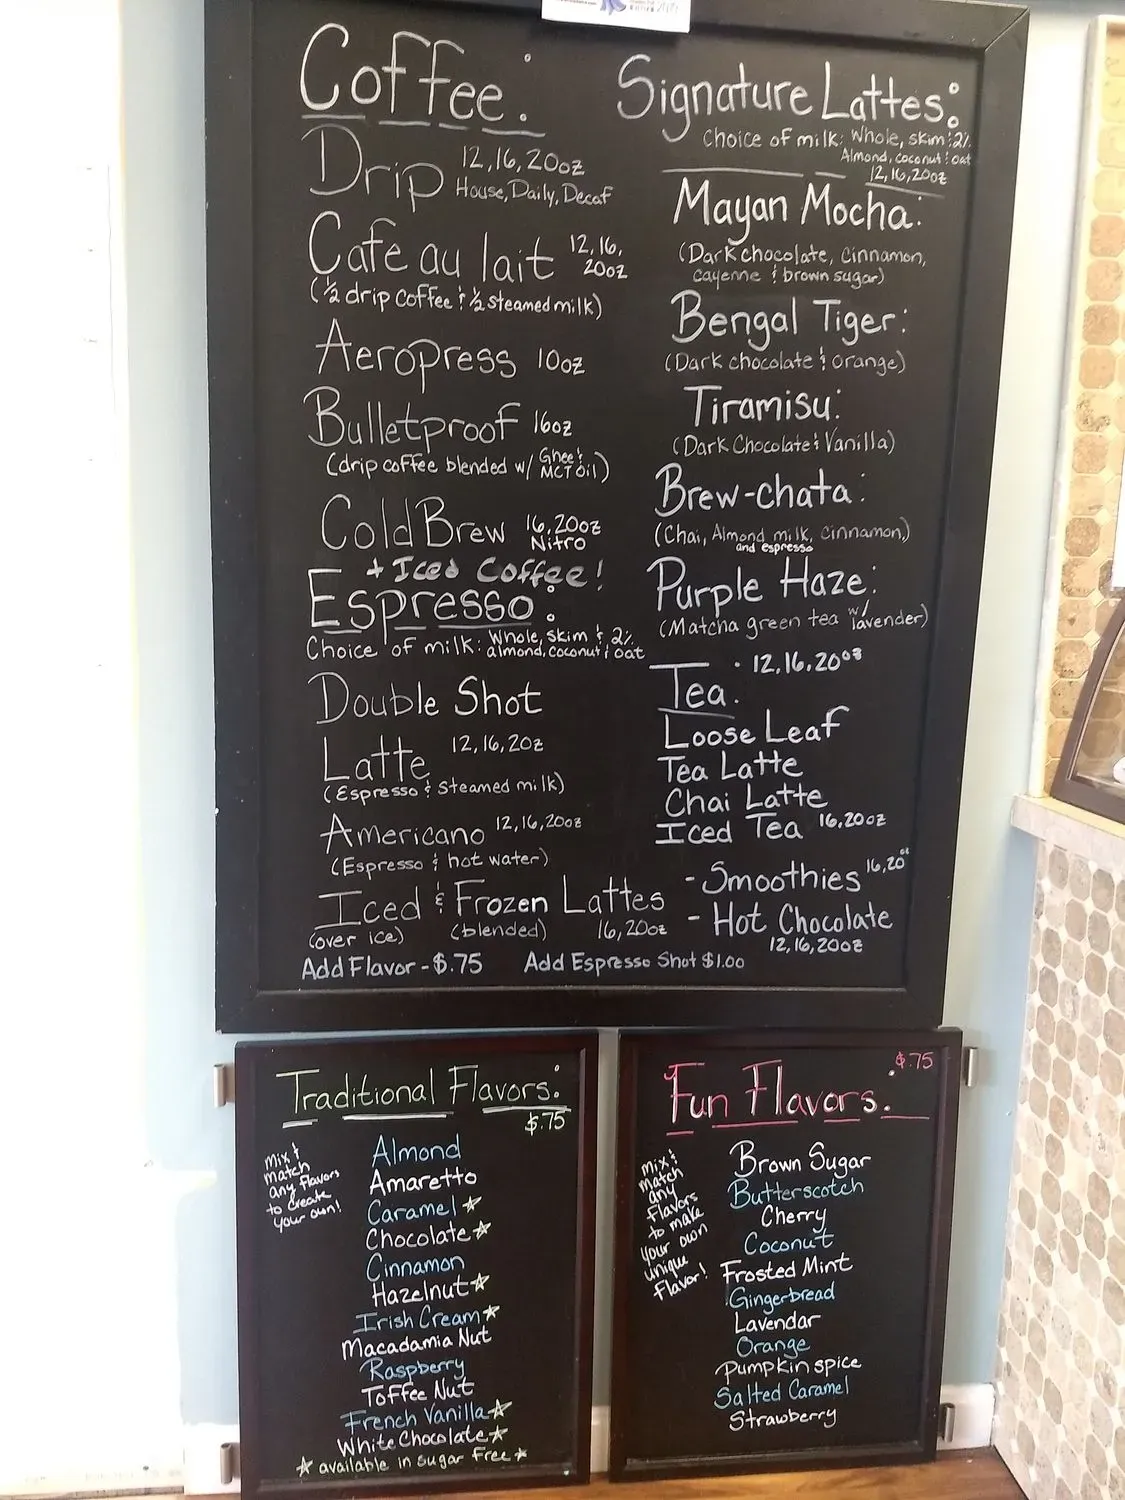 Coffee:
Drip 12, 16, 20oz
House, Daily, Decaf
Cafe au lait 12, 16, 20oz
(1/2 drip coffee & 1/2 steamed milk)
Aeropress 10oz
Bulletproof 16oz
(drip coffee blended w/ Ghee & MCT oil)
Cold Brew 16, 20oz
Nitro
+ Iced Coffee!
Espresso:
Choice of milk: Whole, skim & 2%
almond, coconut & oat
Double Shot
Latte 12, 16, 20z
(Espresso & steamed milk)
Americano 12, 16, 20oz
(Espresso & hot water)
Iced & Frozen Lattes
(over ice) (blended) 16, 20oz
Add Flavor - $.75 Add Espresso Shot $1.00
Signature Lattes:
Choice of milk: Whole, skim & 2%
Almond, coconut & oat
12, 16, 20oz
Mayan Mocha:
(Dark chocolate, cinnamon,
cayenne & brown sugar)
Bengal Tiger:
(Dark chocolate & orange)
Tiramisu:
(Dark Chocolate & Vanilla)
Brew-chata:
(Chai, Almond milk, cinnamon,)
and espresso
Purple Haze:
(Matcha green tea w/ lavender)
Tea: 12, 16, 20oz
Loose Leaf
Tea Latte
Chai Latte
Iced Tea 16, 20oz
- Smoothies 16, 20oz
- Hot Chocolate
12, 16, 20oz
Traditional Flavors:
$.75
mix &
match
any flavors
to create
your own!
Almond
Amaretto
Caramel ☆
Chocolate ☆
Cinnamon
Hazelnut ☆
Irish Cream ☆
Macadamia Nut
Raspberry
Toffee Nut
French Vanilla ☆
White Chocolate ☆
☆ available in sugar free ☆
Fun Flavors:
$.75
mix &
match
any
flavors
to make
your own
unique
flavor!
Brown Sugar
Butterscotch
Cherry
Coconut
Frosted Mint
Gingerbread
Lavendar
Orange
Pumpkin spice
Salted Caramel
Strawberry